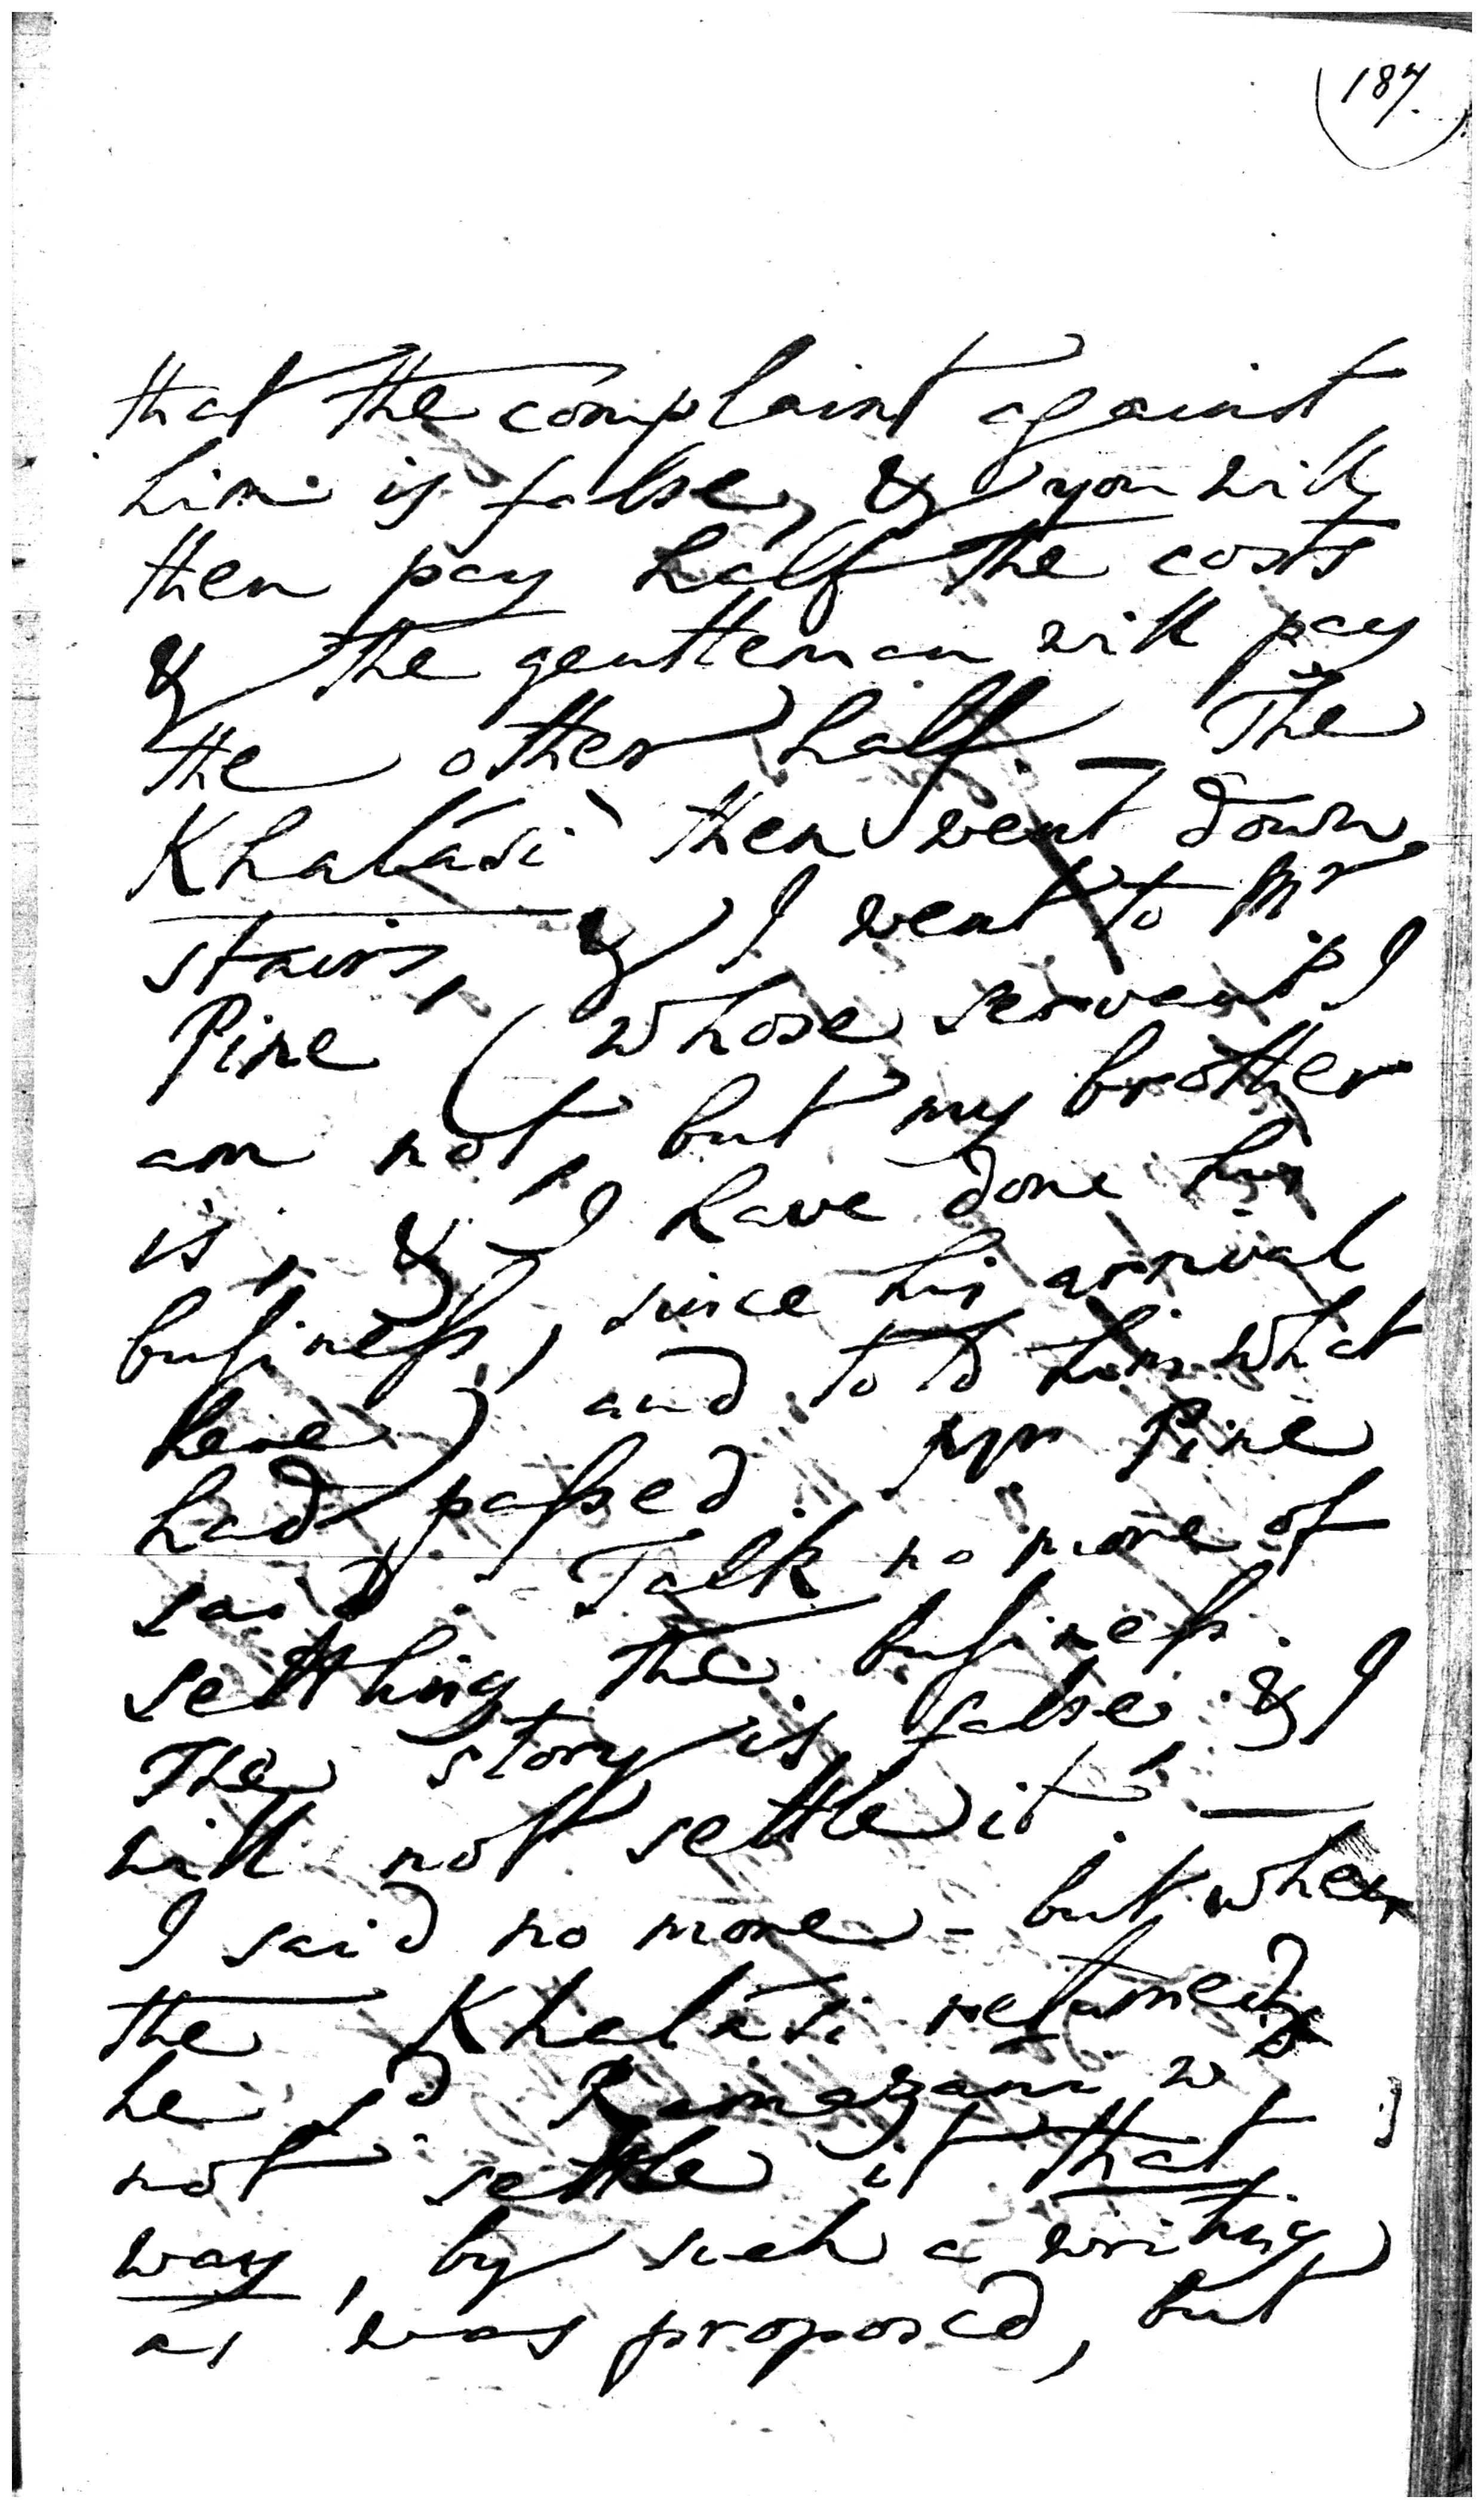 187.
that the complaint against
him is false, & you will
then pay half the costs
& the gentleman will pay
the other half. — The
Khalási then went down
stairs, & I went to Mr
Pine (whose servant I
am not, but my brother
is, & I have done his
business, since his arrival
here) and told him what
had passed. Mr Pine
said. Talk no more of
settling the business.
The story is false & I
will not settle it. —
I said no more - but when
the Khalási returned
he sd Ramazani wd
not settle it that
way, by such a writing
as was proposed, but